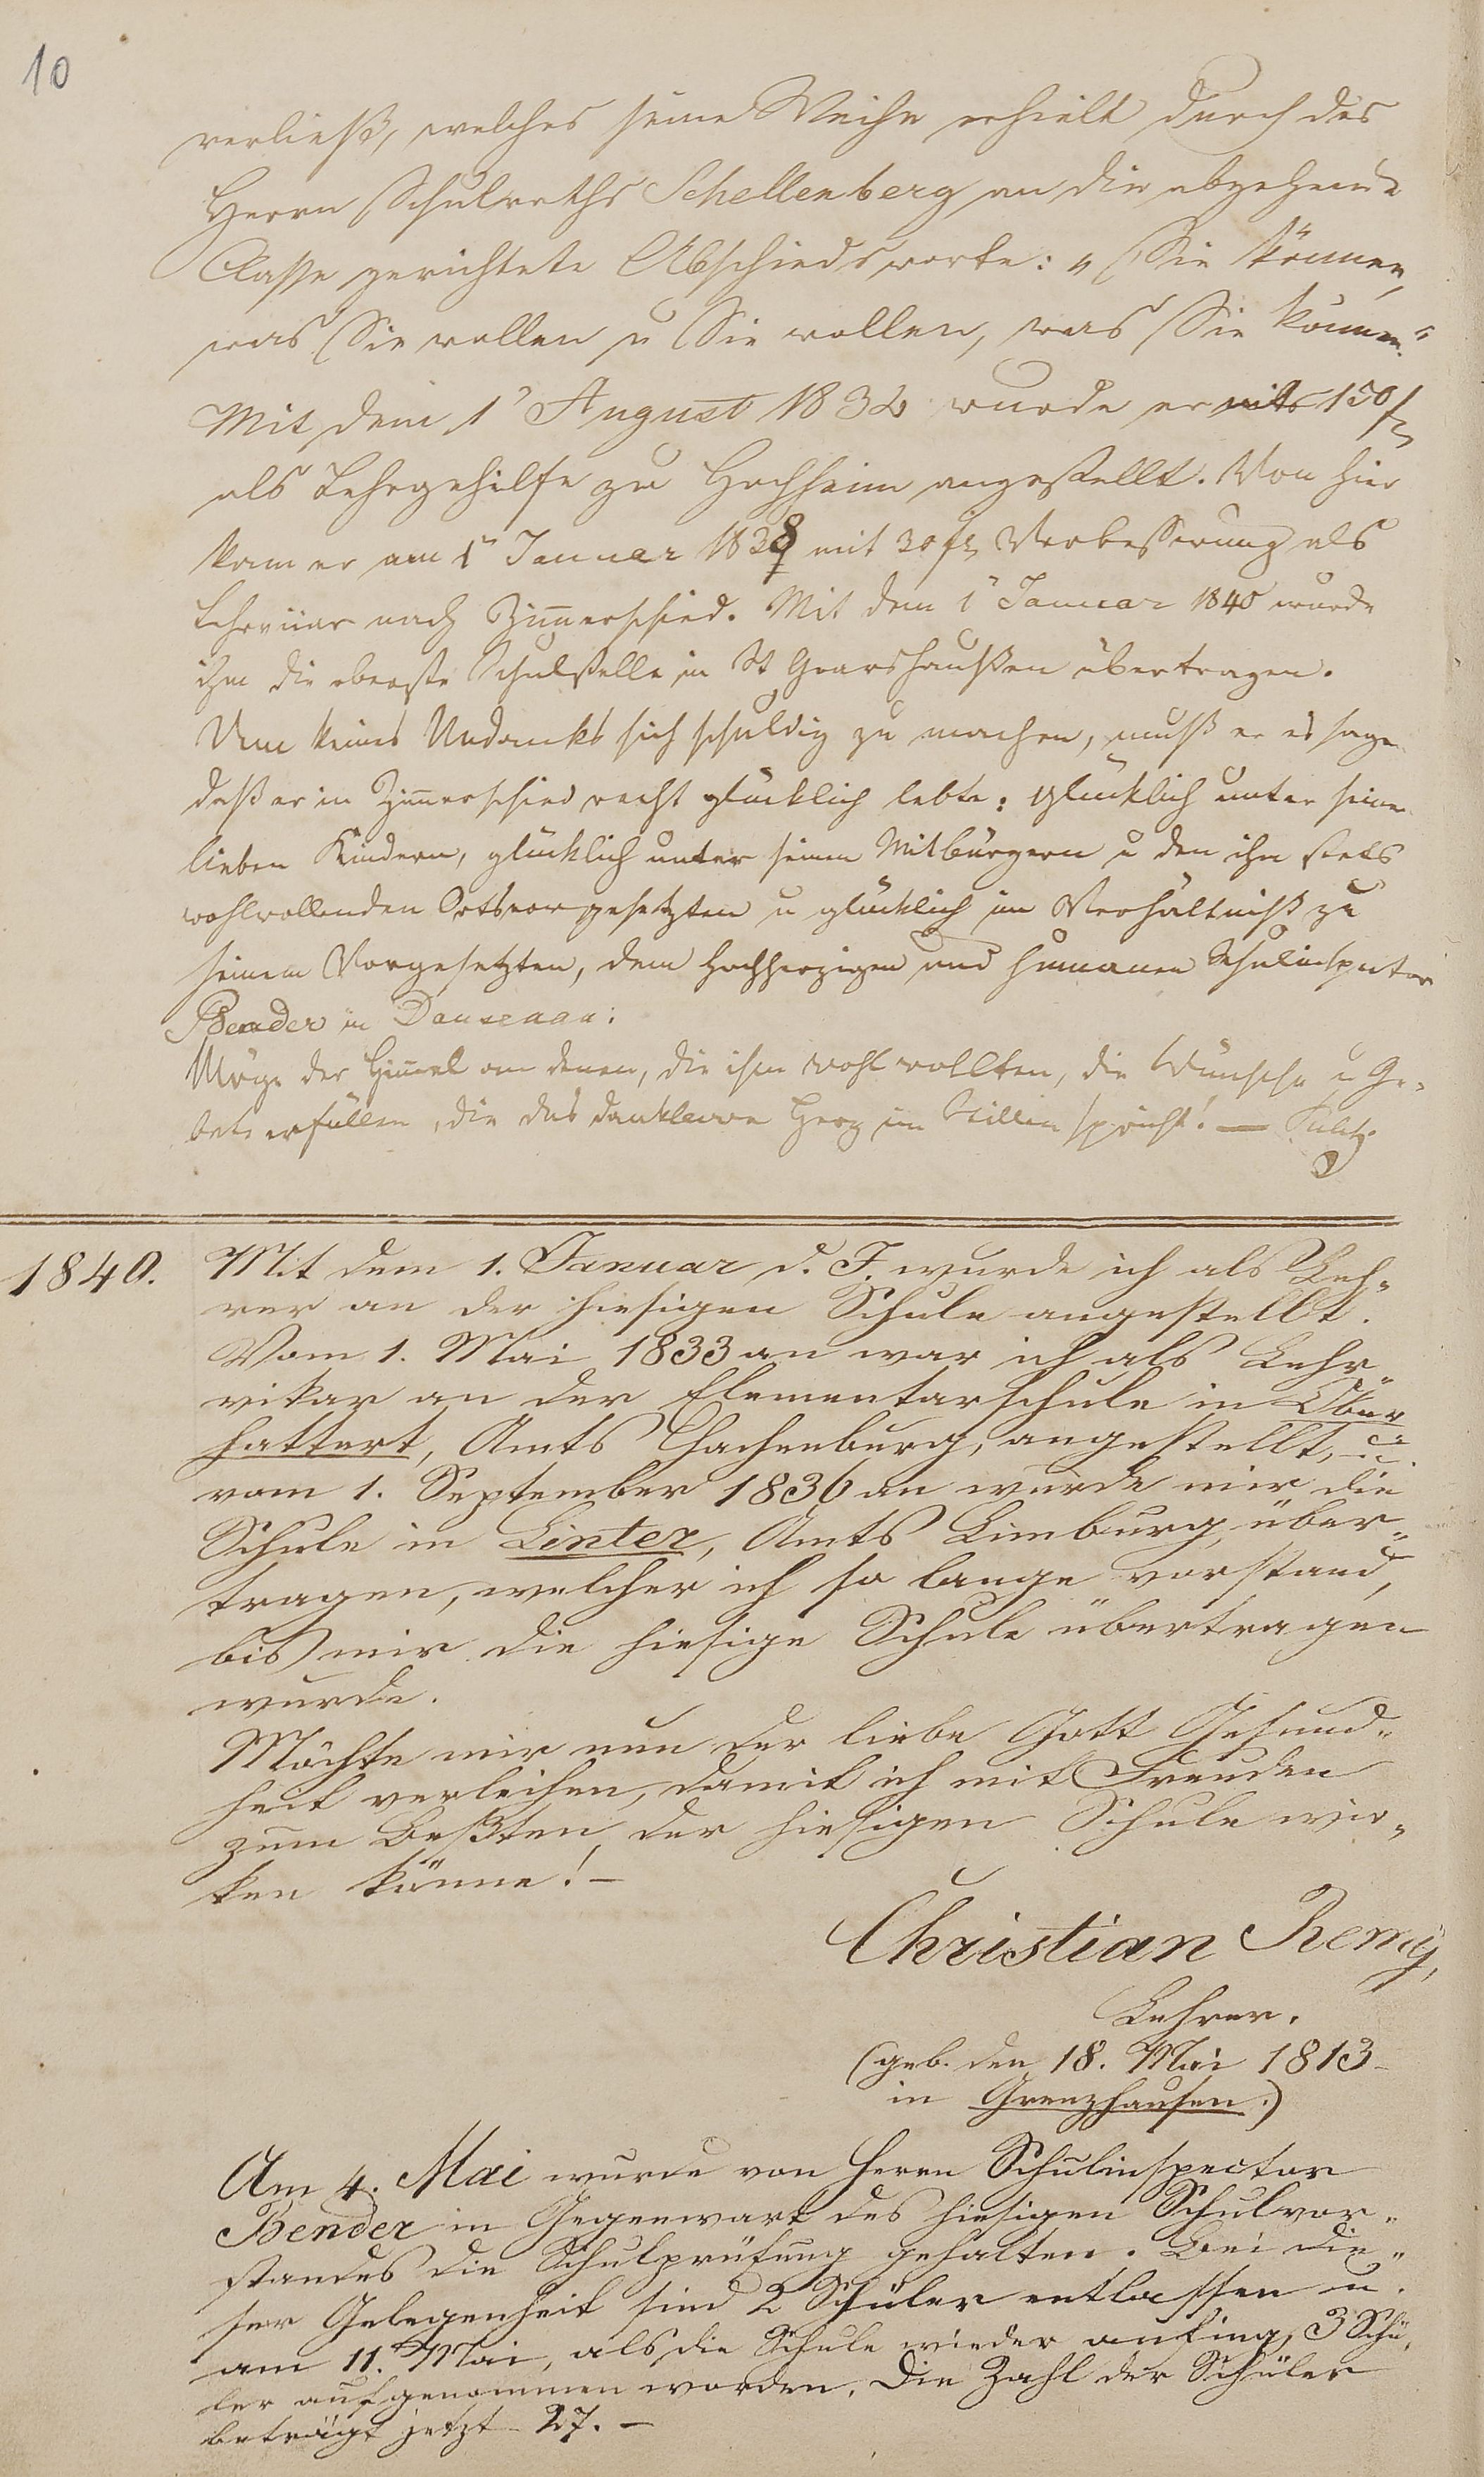 10
verließ, welches seine Weihe erhielt durch des
Herrn Schulraths Schellenberg an die abgehende
Classe gerichtete Abschiedsworte: „Sie können,
was Sie wollen u Sie wollen, was Sie können“.
Mit dem 1 August 1832 wurde er mit 150 f
als Lehrgehilfe zu Hochheim angestellt. Von hier
kam er am 1 Januar 1838 mit 30 f Verbesserung als
Lehrvikar nach Zimmerschied. Mit dem 1 Januar 1840 wurde
ihm die oberste Schulstelle in St Goarshaußen übertragen.
Um keines Undanks sich schuldig zu machen, muß er es sagen
daß er in Zimmerschied recht glücklich lebte: glücklich unter seinen
lieben Kindern, glücklich unter seinen Mitbürgern u den ihn stets
wohlwollenden Ortsvorgesetzten u glücklich im Verhältniß zu
seinem Vorgesetzten, dem hochherzigen und humanen Schulinspector
Bender in Dausenau.
Möge der Himmel an denen, die ihm wohl wollten, die Wünsche u Ge-
bete erfüllen, die das dankbare Herz im Stillen spricht! —
1840.
Mit dem 1. Januar d. J. wurde ich als Leh-
rer an der hiesigen Schule angestellt.
Vom 1. Mai 1833 an war ich als Lehr-
vikar an der Elementarschule in Ober
hattert, Amts Hachenburg, angestellt, u.
vom 1. September 1836 an wurde mir die
Schule in Linter, Amts Limburg, über-
tragen, welcher ich so lange vorstand,
bis mir die hiesige Schule übertragen
wurde.
Möchte mir nun der liebe Gott Gesund-
heit verleihen, damit ich mit Freuden
zum Beßten der hiesigen Schule wir-
ken könne! —
Christian Remy,
Lehrer.
(geb. den 18. Mai 1813
in Grenzhausen.)
Am 4. Mai wurde von Herrn Schulinspector
Bender in Gegenwart des hiesigen Schulvor-
standes die Schulprüfung gehalten. Bei die-
ser Gelegenheit sind 2 Schüler entlassen u.
am 11. Mai, als die Schule wieder anfing, 3 Schü-
ler aufgenommen worden. Die Zahl der Schüler
beträgt jetzt 27. —